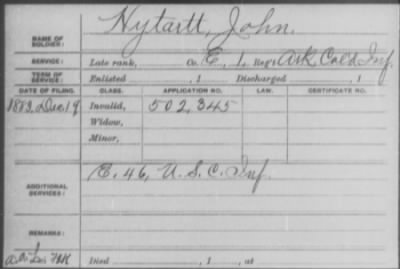 NAME OF SOLDIER: Hytartt, John.
SERVICE: Late rank, Co. E, 1, Reg't Ark Col'd Inf.
TERM OF SERVICE: Enlisted , 1 Discharged , 1
DATE OF FILING. CLASS. APPLICATION NO. LAW. CERTIFICATE NO.
1883, Dec. 19 Invalid, 502,345
Widow,
Minor,
ADDITIONAL SERVICES: E. 46, U. S. C. Inf.
REMARKS:
Died , 1 , at